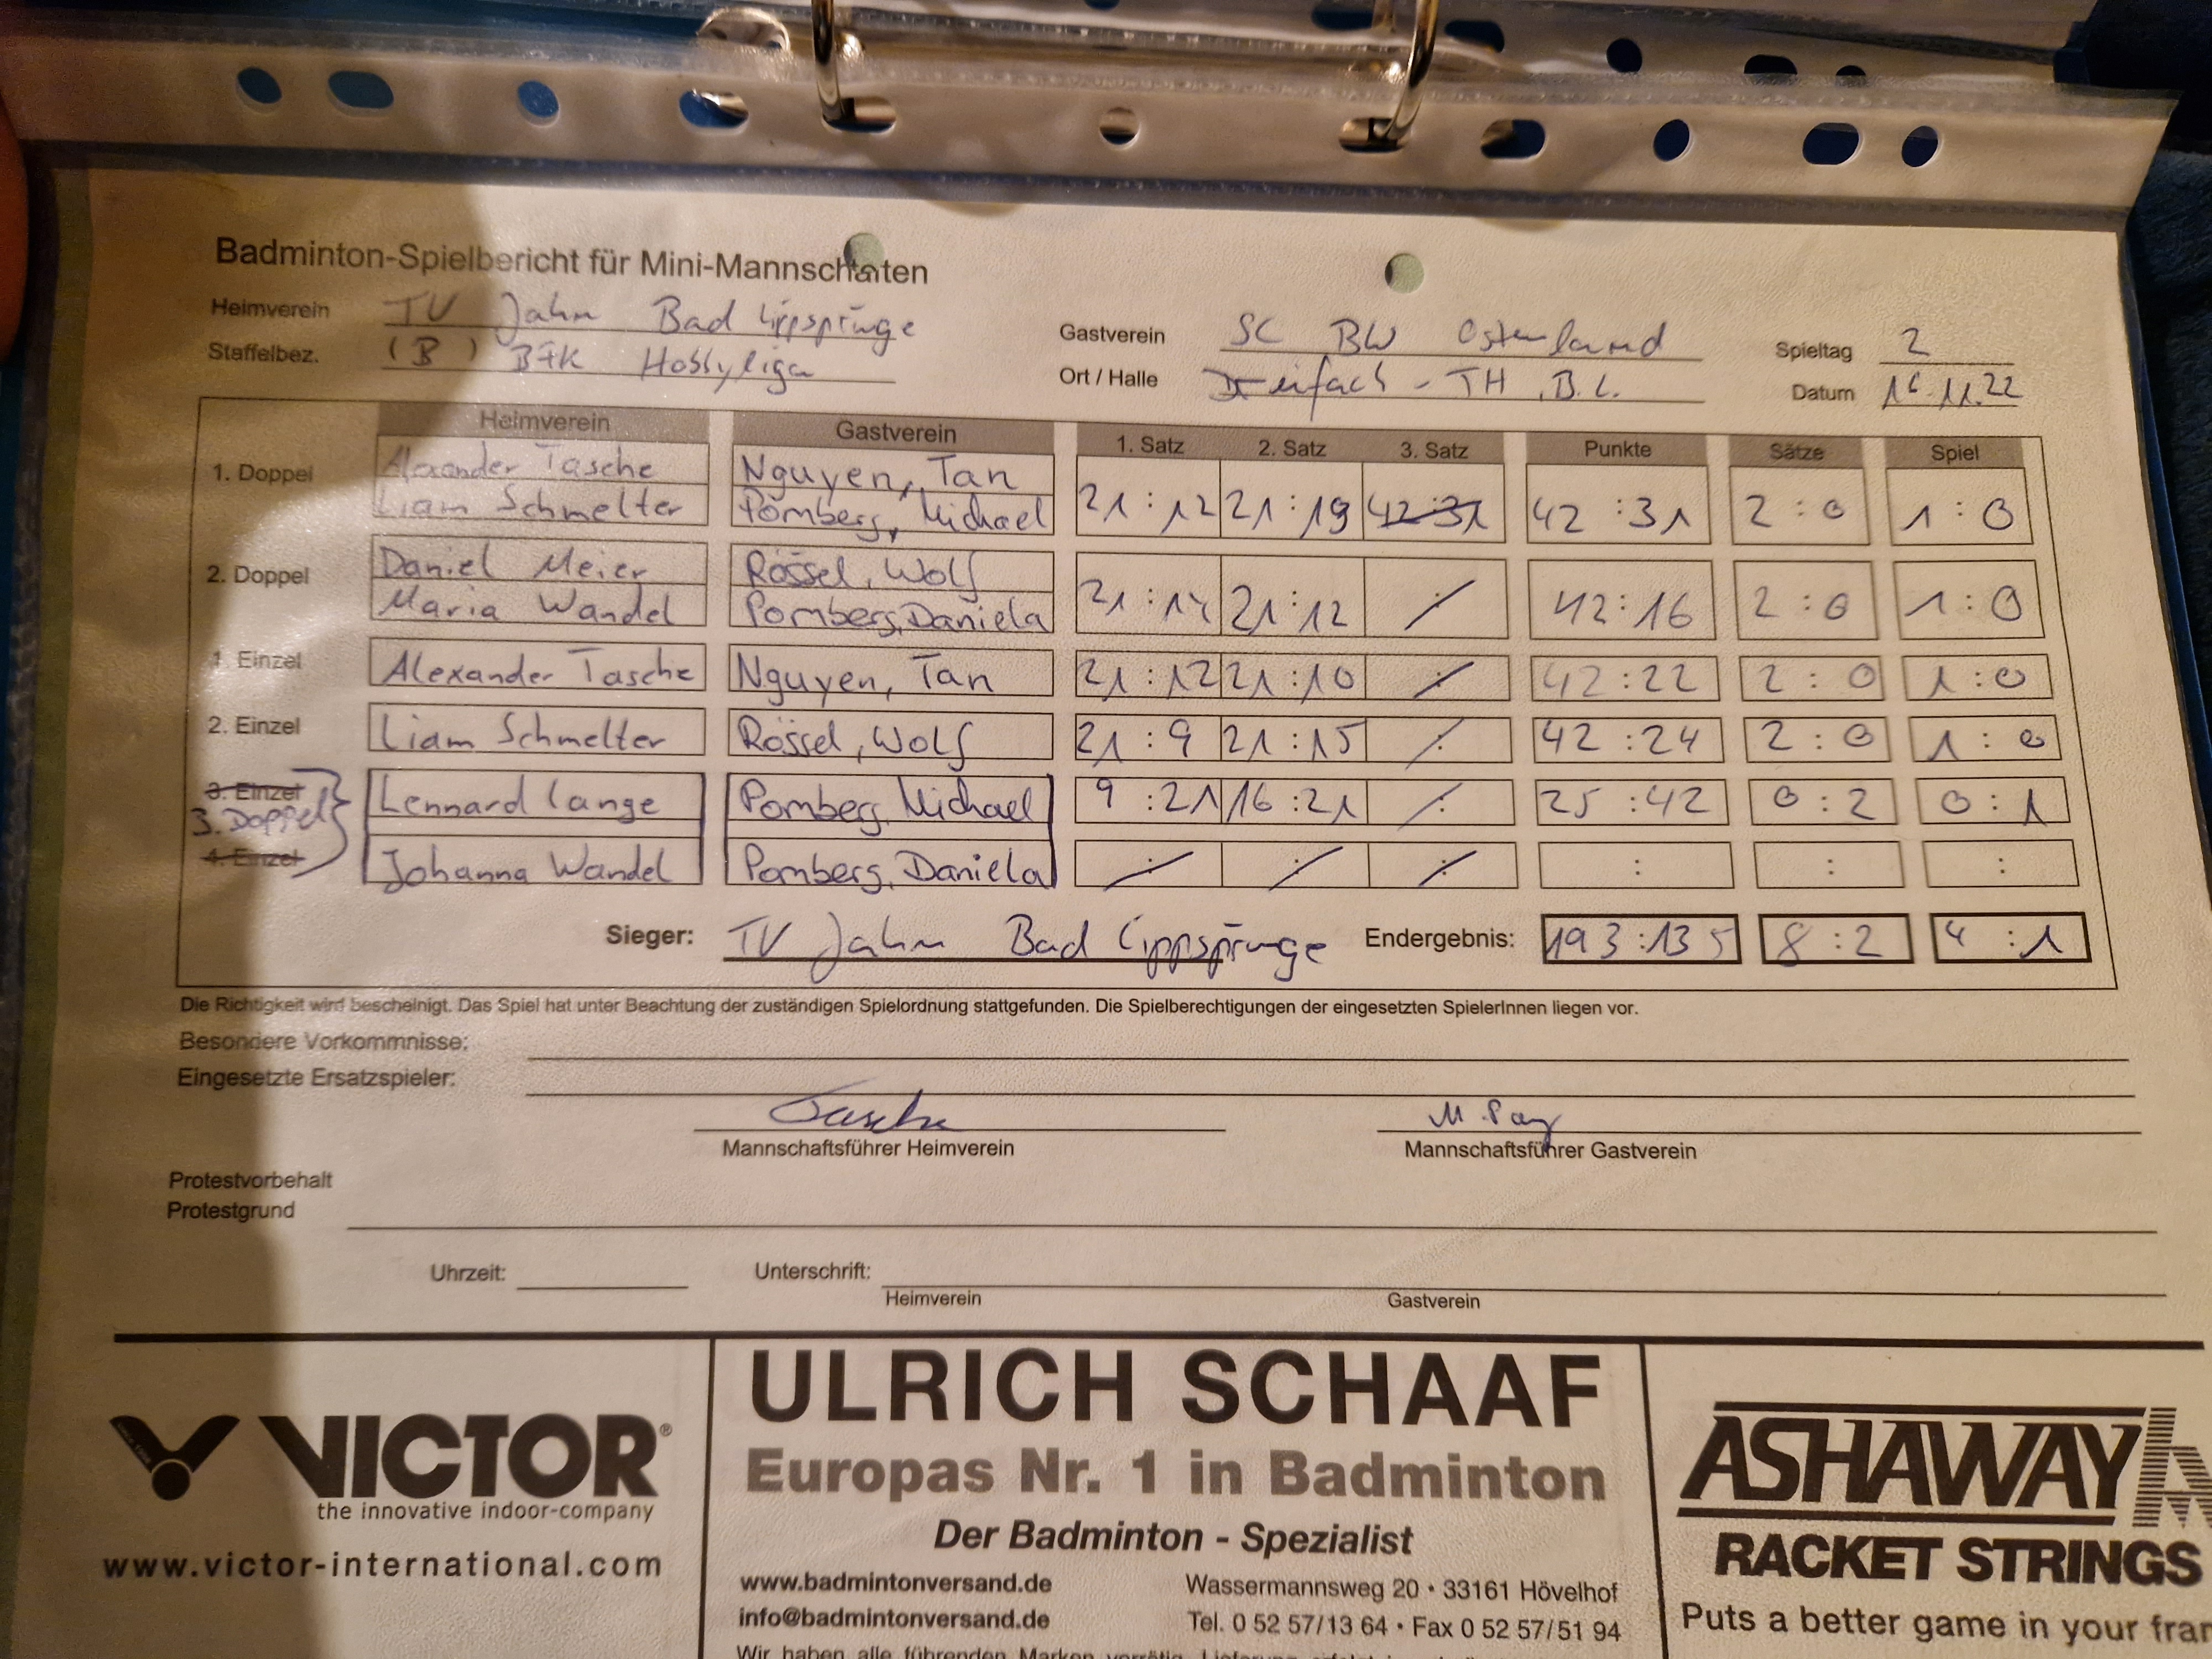 Badminton-Spielbericht für Mini-Mannschaften
Heimverein TV Jahn Bad Lippspringe Gastverein SC BW Ostenland Spieltag 2
Staffelbez. (B) BFK Hobbyliga Ort / Halle Dreifach - TH, B.L. Datum 16.11.22
Heimverein Gastverein 1. Satz 2. Satz 3. Satz Punkte Sätze Spiel
1. Doppel Alexander Tasche Nguyen, Tan
Liam Schmelter Pomberg, Michael 21 : 12 21 : 19 42:31 42 : 31 2 : 0 1 : 0
2. Doppel Daniel Meier Rössel, Wolf
Maria Wandel Pomberg, Daniela 21 : 14 21 : 12 : 42 : 16 2 : 0 1 : 0
1. Einzel Alexander Tasche Nguyen, Tan 21 : 12 21 : 10 : 42 : 22 2 : 0 1 : 0
2. Einzel Liam Schmelter Rössel, Wolf 21 : 9 21 : 15 : 42 : 24 2 : 0 1 : 0
3. Einzel Lennard Lange Pomberg, Michael 9 : 21 16 : 21 : 25 : 42 0 : 2 0 : 1
3. Doppel
4. Einzel Johanna Wandel Pomberg, Daniela : : : : : :
Sieger: TV Jahn Bad Lippspringe Endergebnis: 193 : 135 8 : 2 4 : 1
Die Richtigkeit wird bescheinigt. Das Spiel hat unter Beachtung der zuständigen Spielordnung stattgefunden. Die Spielberechtigungen der eingesetzten SpielerInnen liegen vor.
Besondere Vorkommnisse:
Eingesetzte Ersatzspieler:
Tasche
Mannschaftsführer Heimverein Mannschaftsführer Gastverein
Protestvorbehalt
Protestgrund
Uhrzeit: Unterschrift:
Heimverein Gastverein
VICTOR®
the innovative indoor-company
www.victor-international.com
ULRICH SCHAAF
Europas Nr. 1 in Badminton
Der Badminton - Spezialist
www.badmintonversand.de Wassermannsweg 20 • 33161 Hövelhof
info@badmintonversand.de Tel. 0 52 57/13 64 • Fax 0 52 57/51 94
Wir haben alle führenden Marken vorrätig.
ASHAWAY
RACKET STRINGS
Puts a better game in your